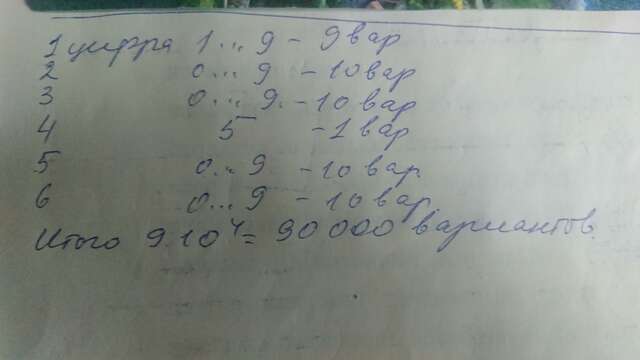 1 цифра 1...9 - 9 вар
2 0...9 - 10 вар
3 0...9. - 10 вар
4 5 - 1 вар
5 0...9 - 10 вар.
6 0...9 - 10 вар.
Итого 9 10⁴ = 90 000 вариантов.